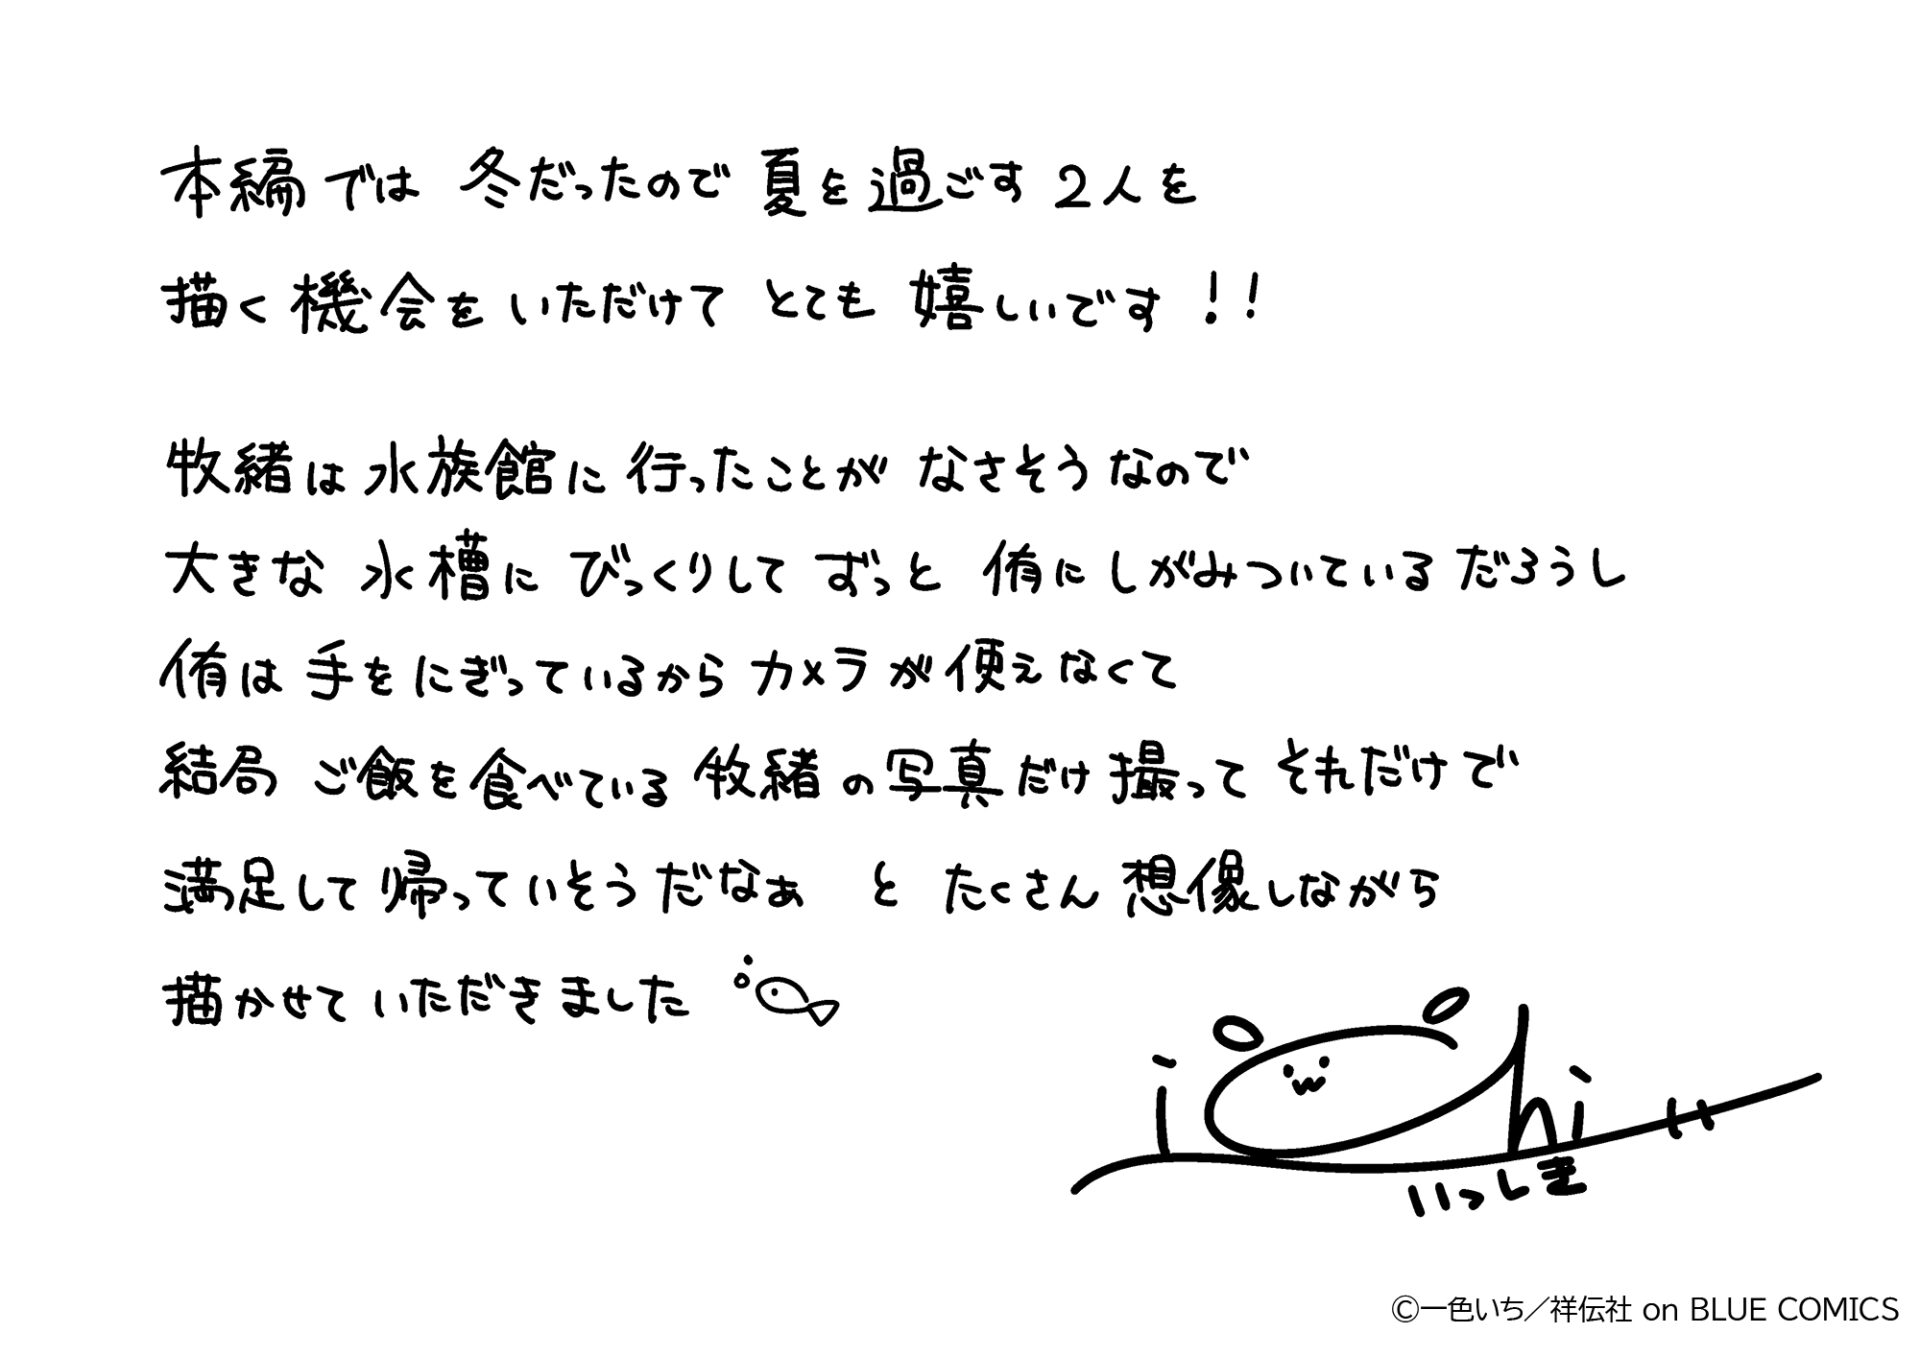 本編では 冬だったので 夏を過ごす2人を
描く機会をいただけて とても 嬉しいです!!
牧緒は水族館に行ったことが なさそうなので
大きな 水槽に びっくりして ずっと 侑にしがみついているだろうし
侑は手をにぎっているからカメラが使えなくて
結局 ご飯を食べている牧緒の写真だけ撮って それだけで
満足して帰っていそうだなぁ と たくさん想像しながら
描かせていただきました
ichi
いっしき
©一色いち/祥伝社 on BLUE COMICS